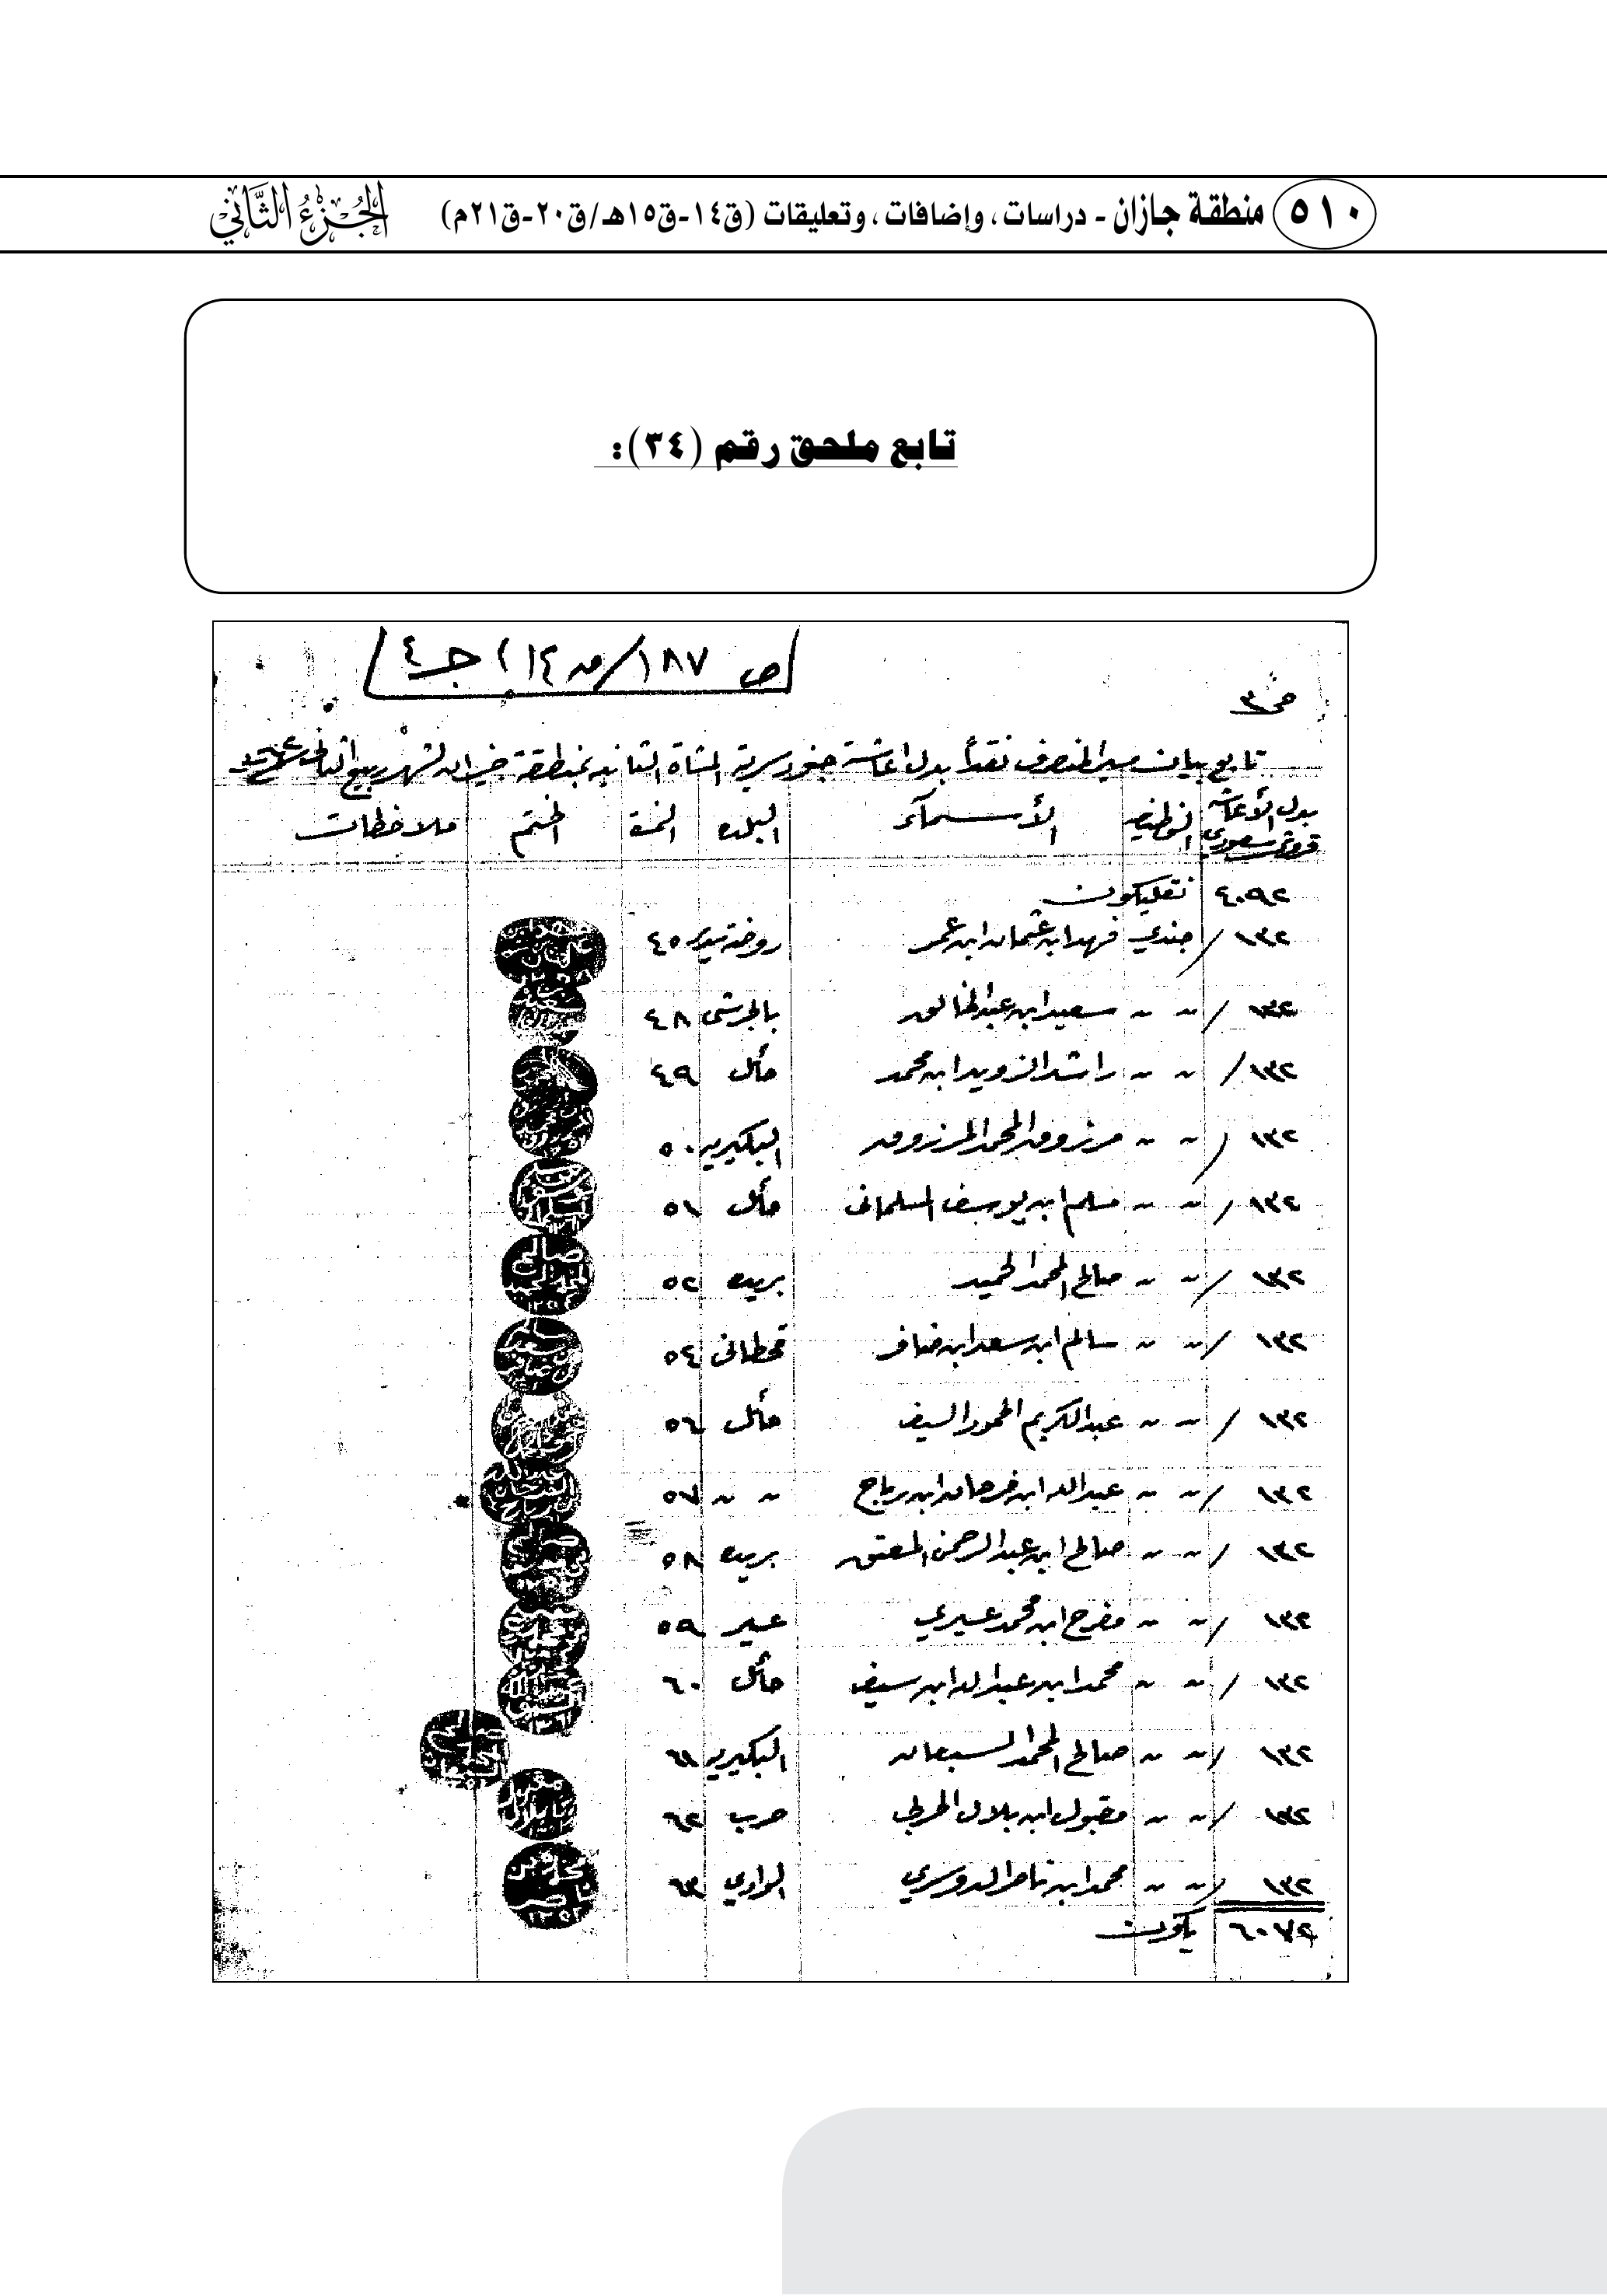 ٥١٠ منطقة جازان - دراسات، وإضافات، وتعليقات (ق١٤-ق١٥هـ/ق٢٠-ق٢١م) الجزء الثاني
تابع ملحق رقم (٣٤):
ص ١٨٧/ م ١٤) جـ٤
ص٣
تابع بيان سير المنصرف نقداً بدل اعاشة جنود سرية المشاة الثانيه بمنطقة جيزان لشهر ربيع الثاني
بدل الأعاشه قروش سعودي الوظيفه الأسمآء البلده النمرة الختم ملاحظات
٤٠٩٢ نقليكون
١٣٢ / جندي فهد ابن عثمان ابن عمر روضة سدير ٤٥
١٣٢ / ~ ~ سعيد ابن عبدالخالق بالجرشى ٤٨
١٣٢ / ~ ~ راشد الزويد ابن محمد حائل ٤٩
١٣٢ / ~ ~ مرزوق المحمد المرزوق البكيريه ٥٠
١٣٢ / ~ ~ مسلم ابن يوسف المسلمانى حائل ٥١
١٣٢ / ~ ~ صالح المحمد الحميد بريده ٥٢
١٣٢ / ~ ~ سالم ابن سعد ابن ضافر قحطانى ٥٤
١٣٢ / ~ ~ عبدالكريم الحمود السيف حائل ٥٦
١٣٢ / ~ ~ عبدالله ابن فرحان ابن رباح ~ ~ ٥٧
١٣٢ / ~ ~ صالح ابن عبدالرحمن المعتق بريده ٥٨
١٣٢ / ~ ~ مفرح ابن محمد عسيري عسير ٥٩
١٣٢ / ~ ~ محمد ابن عبدالله ابن سيف حائل ٦٠
١٣٢ / ~ ~ صالح المحمد السبعان البكيريه ٦١
١٣٢ / ~ ~ مقبول ابن بلال الحربي حرب ٦٢
١٣٢ / ~ ~ محمد ابن ناصر الدوسري الوادي ٦٣
٦٠٧٢ يكون